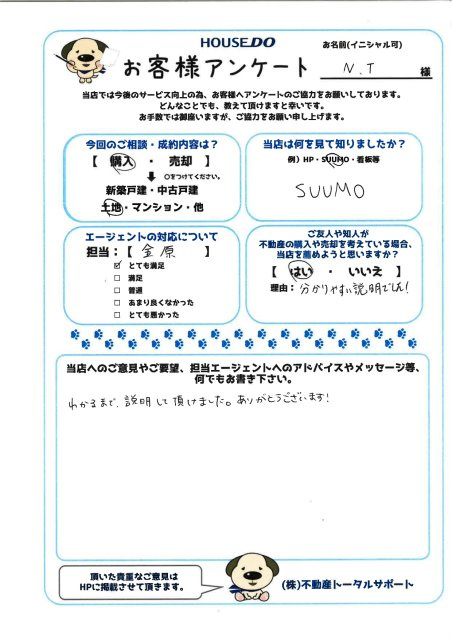 HOUSEDO
お客様アンケート
お名前(イニシャル可)
N.T 様
当店では今後のサービス向上の為、お客様へアンケートのご協力をお願いしております。
どんなことでも、教えて頂けますと幸いです。
お手数では御座いますが、ご協力をお願い申し上げます。
今回のご相談・成約内容は?
【 購入 ・ 売却 】
○をつけてください。
新築戸建・中古戸建
土地・マンション・他
当店は何を見て知りましたか?
例)HP・SUUMO・看板等
SUUMO
エージェントの対応について
担当:【 金原 】
☑ とても満足
□ 満足
□ 普通
□ あまり良くなかった
□ とても悪かった
ご友人や知人が
不動産の購入や売却を考えている場合、
当店を薦めようと思いますか?
【 はい ・ いいえ 】
理由:分かりやすい説明でした!
当店へのご意見やご要望、担当エージェントへのアドバイスやメッセージ等、
何でもお書き下さい。
わかるまで、説明して頂けました。ありがとうございます!
頂いた貴重なご意見は
HPに掲載させて頂きます。
(株)不動産トータルサポート